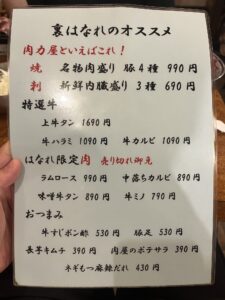 裏はなれのオススメ
肉力屋といえばこれ！
焼 名物肉盛り 豚4種 990円
刺 新鮮内臓盛り 3種 690円
特選牛
上牛タン 1690円
牛ハラミ 1090円 牛カルビ 1090円
はなれ限定肉 売り切れ御免
ラムロース 990円 中落ちカルビ 890円
味噌牛タン 890円 牛ミノ 790円
おつまみ
牛すじポン酢 530円 豚足 530円
長芋キムチ 390円 肉屋のポテサラ 390円
ネギもつ麻辣だれ 430円